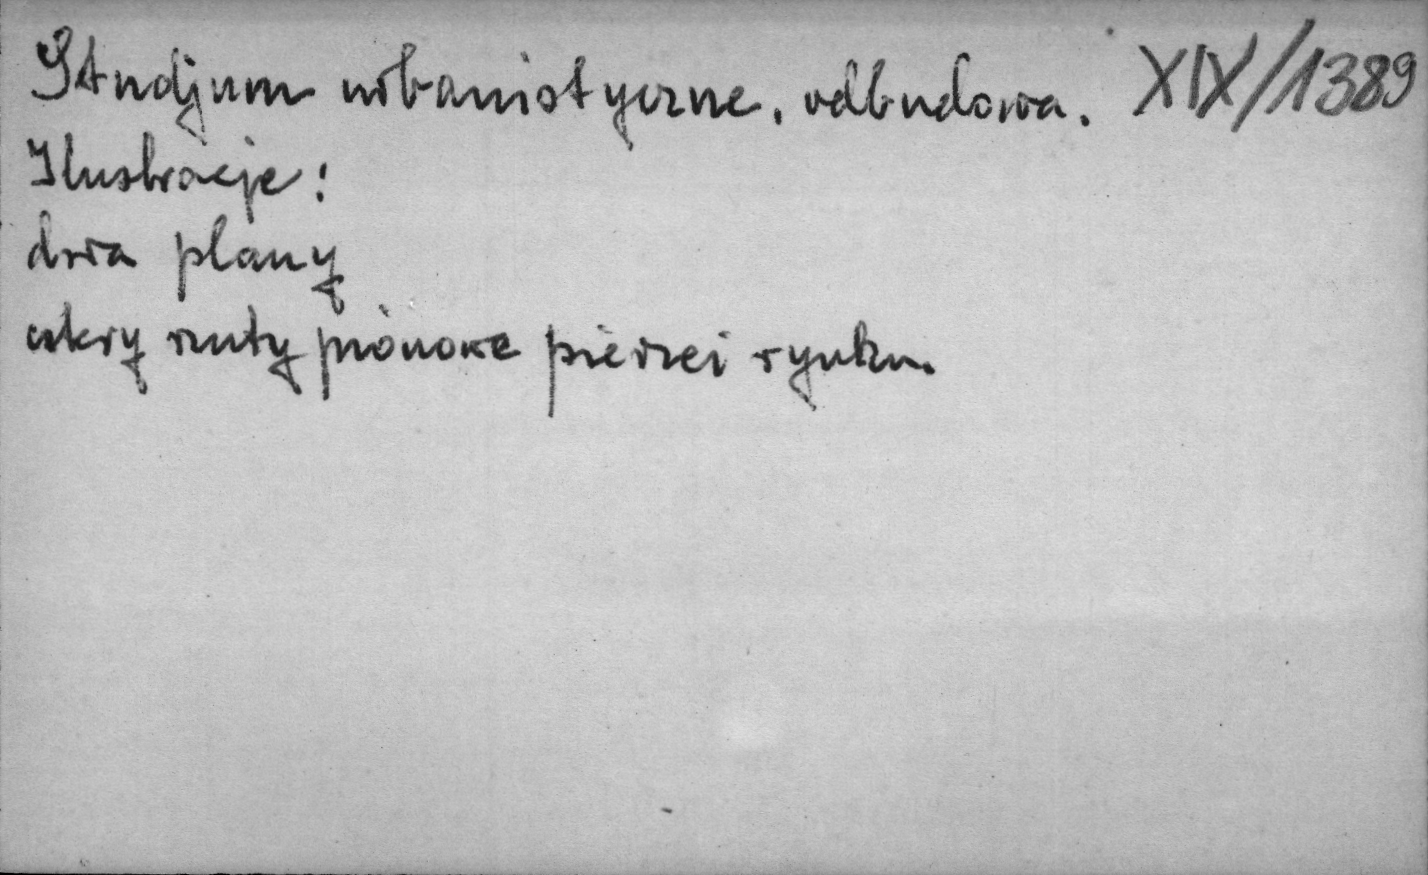 Studjum urbanistyczne, odbudowa. XIX/1389
Ilustracje:
dwa plany
cztery rzuty pionowe pierzei rynku.